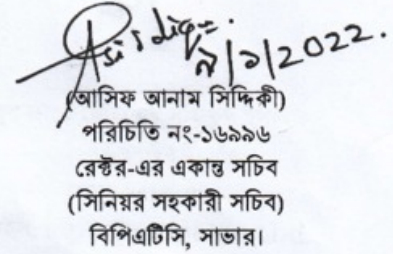 Asiddiq
৯/১/2022.
(আসিফ আনাম সিদ্দিকী)
পরিচিতি নং-১৬৯৯৬
রেক্টর-এর একান্ত সচিব
(সিনিয়র সহকারী সচিব)
বিপিএটিসি, সাভার।